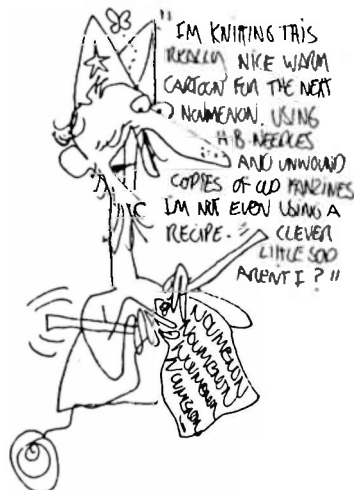 "I'M KNITTING THIS
REALLY NICE WARM
CARTOON FOR THE NEXT
NOUMENON. USING
H·B·NEEDLES
AND UNWOUND
COPIES OF OLD FANZINES
I'M NOT EVEN USING A
RECIPE. CLEVER
LITTLE SOD
ARENT I?"
NOUMENON
NOUMENON
NOUMENON
NOUMENON